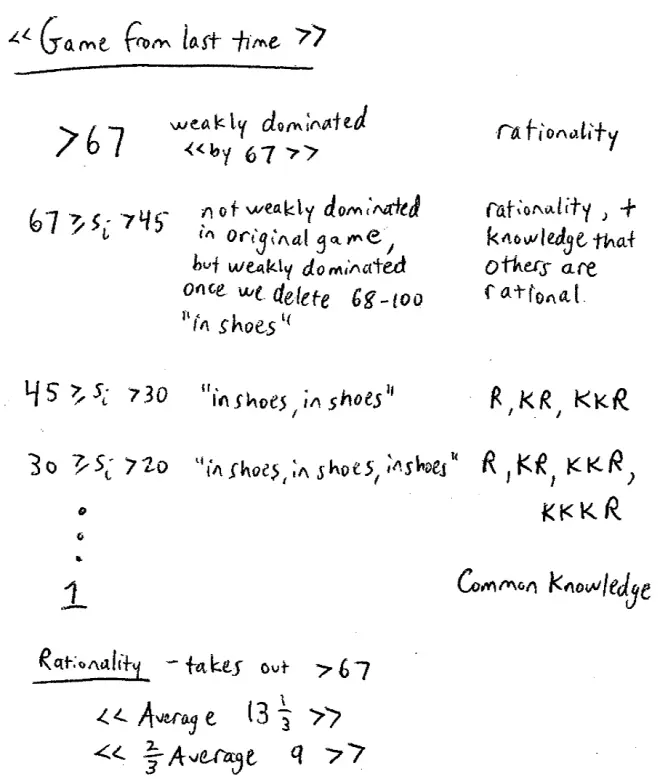 << Game from last time >>
>67 weakly dominated <<by 67>> rationality
67 ≥ Si > 45 not weakly dominated in original game, but weakly dominated once we delete 68-100 "in shoes" rationality, + knowledge that others are rational.
45 ≥ Si > 30 "in shoes, in shoes" R, KR, KKR
30 ≥ Si > 20 "in shoes, in shoes, in shoes" R, KR, KKR, KKKR
1 Common Knowledge
Rationality - takes out >67
<< Average 13 1/3 >>
<< 2/3 Average 9 >>